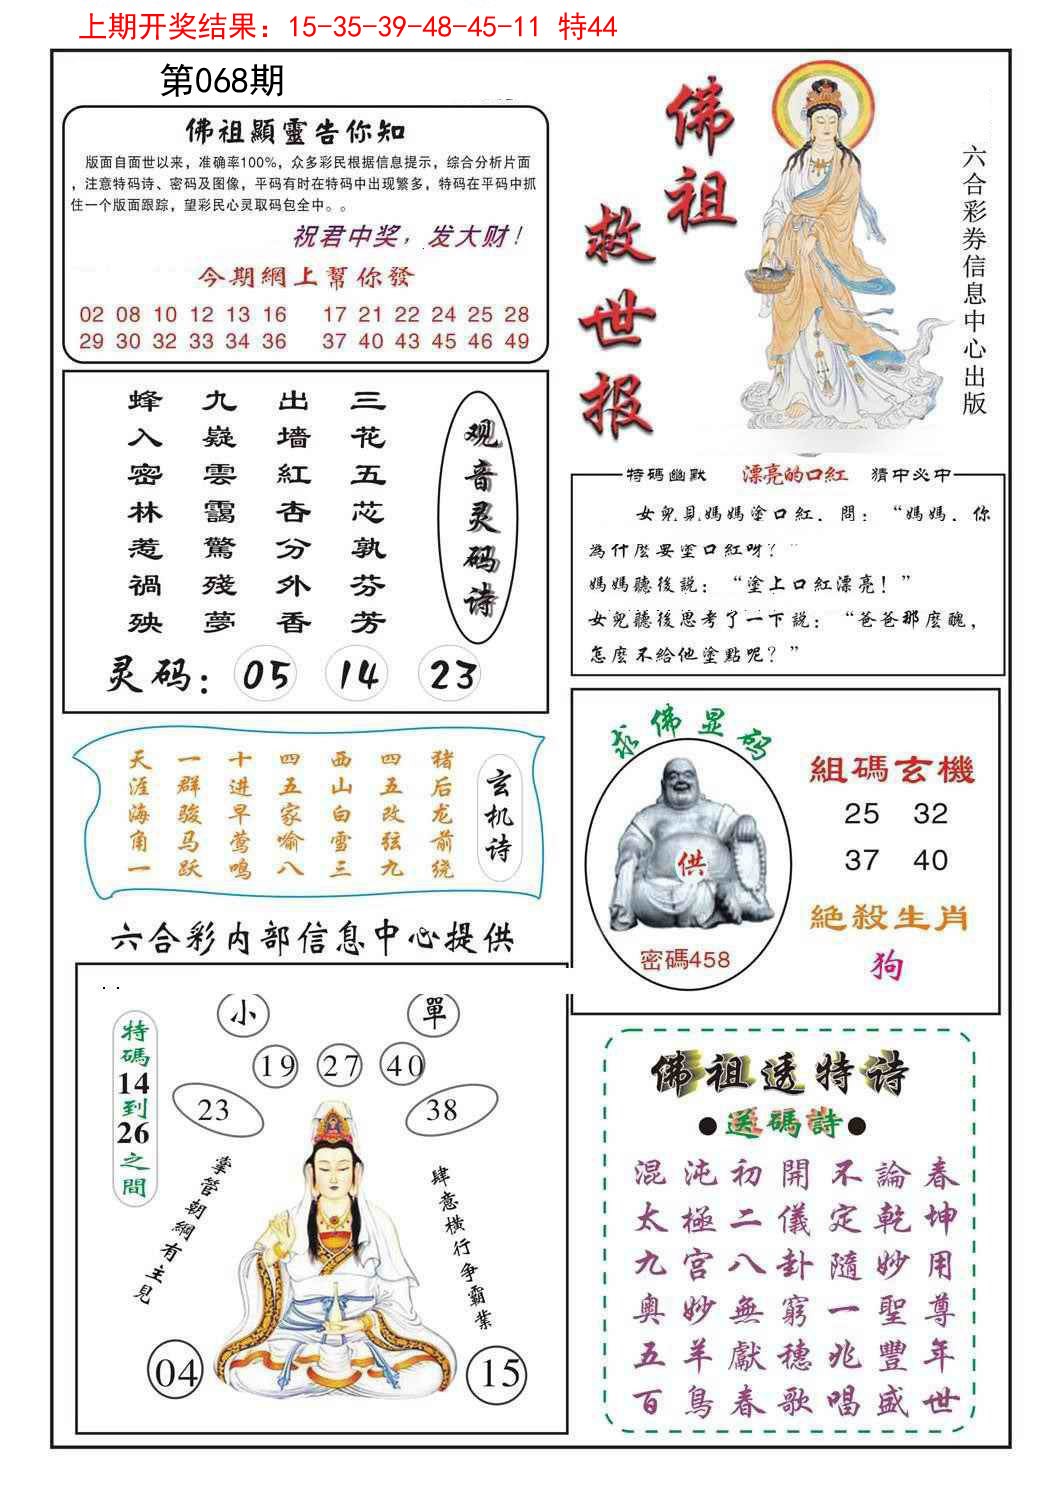 上期开奖结果：15-35-39-48-45-11 特44
第068期
佛祖顯靈告你知
版面自面世以来，准确率100%，众多彩民根据信息提示，综合分析片面
，注意特码诗、密码及图像，平码有时在特码中出现繁多，特码在平码中抓
住一个版面跟踪，望彩民心灵取码包全中。。
祝君中奖，发大财！
今期網上幫你發
02 08 10 12 13 16 17 21 22 24 25 28
29 30 32 33 34 36 37 40 43 45 46 49
佛祖
救世报
六合彩券信息中心出版
观音灵码诗
三花五芯孰芬芳
出墙紅杏分外香
九嶷雲靄驚殘夢
蜂入密林惹禍殃
灵码：05 14 23
特碼幽默 漂亮的口紅 猜中必中
女兒見媽媽塗口紅．問：“媽媽．你
為什麼要塗口紅呀？”
媽媽聽後説：“塗上口紅漂亮！”
女兒聽後思考了一下説：“爸爸那麼醜，
怎麼不給他塗點呢？”
玄机诗
猪后龙前绕
四五改弦九
西山白雪三
四五家喻八
十进早莺鸣
一群骏马跃
天涯海角一
求佛显码
供
密碼458
組碼玄機
25 32
37 40
絕殺生肖
狗
六合彩内部信息中心提供
小 單
19 27 40
23 38
特碼14到26之間
掌管朝綱有主見
肆意橫行争霸業
04 15
佛祖透特诗
●送碼詩●
混沌初開不論春
太極二儀定乾坤
九宮八卦隨妙用
奥妙無窮一聖尊
五羊獻穗兆豐年
百鳥春歌唱盛世